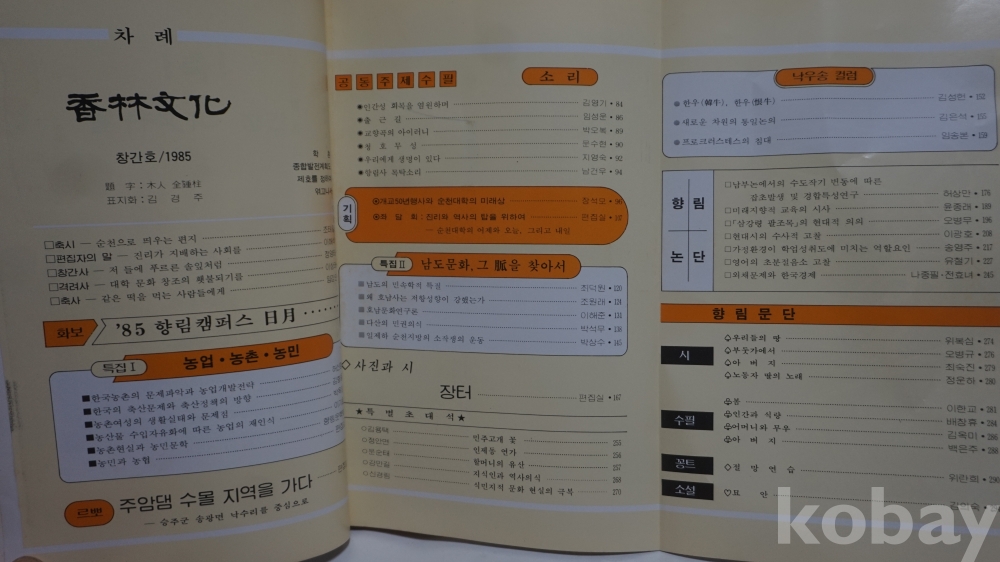 차 례
香林文化
창간호/1985
題 字 : 木人 全鍾柱
표지화 : 김 경 주
학
종합발전계획
제호를
□축시 — 순천으로 띄우는 편지
□편집자의 말 — 진리가 지배하는 사회를
□창간사 — 저 들에 푸르른 솔잎처럼
□격려사 — 대학 문화 창조의 횃불되기를
□축사 — 같은 떡을 먹는 사람들에게
화보 '85 향림캠퍼스 日月
특집Ⅰ 농업·농촌·농민
■한국농촌의 문제파악과 농업개발전략
■한국의 축산문제와 축산정책의 방향
■농촌여성의 생활실태와 문제점
■농산물 수입자유화에 따른 농업의 재인식
■농촌현실과 농민문학
■농민과 농협
르뽀 주암댐 수몰 지역을 가다
— 승주군 송광면 낙수리를 중심으로
공동주제수필 소 리
◉인간성 회복을 염원하며 김영기·84
◉출 근 길 임성운·86
◉교향곡의 아이러니 박오복·89
◉청 호 무 성 문수현·90
◉우리에게 생명이 있다 지영숙·92
◉향림사 목탁소리 남간우·94
기획
㉮개교50년행사와 순천대학의 미래상 장석모·96
㉯좌 담 회 : 진리와 역사의 탑을 위하여 편집실·107
— 순천대학의 어제와 오늘, 그리고 내일
특집Ⅱ 남도문화, 그 脈을 찾아서
■남도의 민속학적 특징 최덕원·120
■왜 호남사는 저항성향이 강했는가 조원래·124
■호남문화연구론 이해준·131
■다산의 민권의식 박석무·138
■일제하 순천지방의 소작쟁의 운동 박삼수·145
◇사진과 시
장터 편집실·167
★특 별 초 대 석★
◇김용택 민주고개 꽃 255
◇정안면 인제들 연가 256
◇문순태 할머니의 유산 257
◇김만철 지식인과 역사의식 268
식민지적 문화 현실의 극복 270
낙우송 컬럼
◉한우(韓牛), 한우(恨牛) 김성헌·152
◉새로운 차원의 통일논의 김운석·155
◉프로크러스테스의 침대 임송본·159
향림논단
□남부논에서의 수도작기 변동에 따른
잡초발생 및 경합특성연구 허상만·176
□미래지향적 교육의 시사 윤종래·189
□「삼강령 팔조목」의 현대적 의의 오병무·196
□현대시의 수사적 고찰 이광호·206
□가정환경이 학업성취도에 미치는 역할요인 송영주·217
□영어의 초분절음소 고찰 유철기·227
□외채문제와 한국경제 나종필·전효녀·245
향 림 문 단
시
♤우리들의 땅 위복심·274
♤부둣가에서 오병규·276
♤아 버 지 최숙진·279
♤노동자 땀의 노래 정문하·280
수필
♤봄 이현교·282
♤인간과 식량 배창휴·284
♤어머니와 무우 김옥미·286
♤아 버 지 백운주·288
꽁트 ◇절 망 연 습 위란희·290
소설 ♡묘 안
kobay